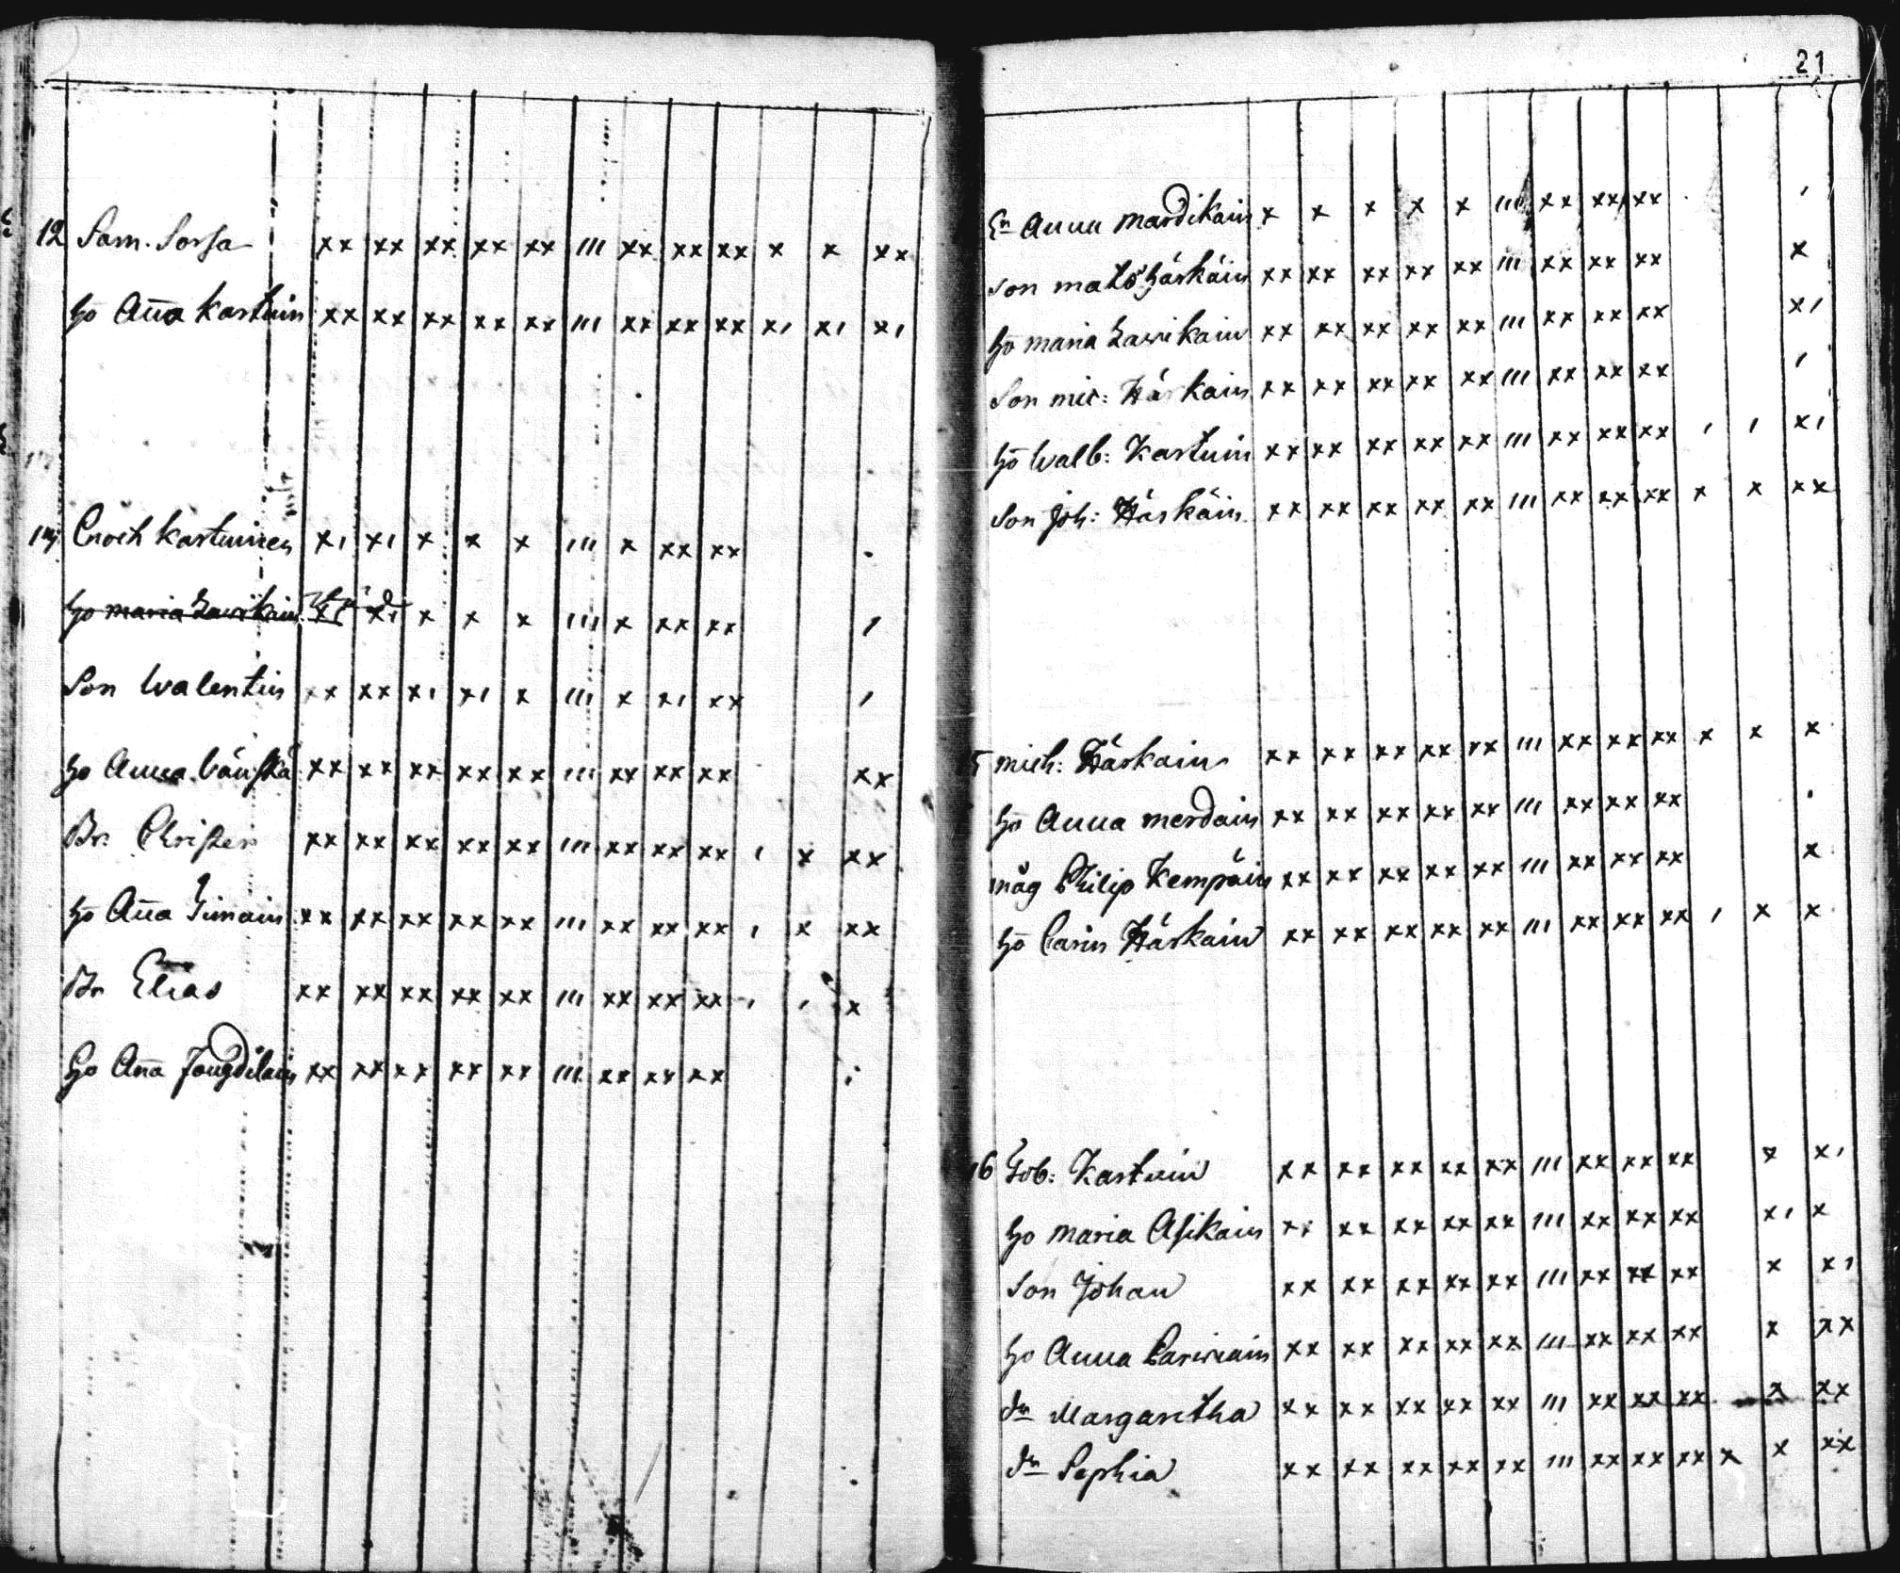 12 Sam. Sorsa xx xx xx xx xx III xx xx xx x x xx
ho Aña Kartuin xx xx xx xx xx III xx xx xx xı xı xı
14 Enoch Kartuinen xı xı x x x III x xx xx
ho maria Lavikain xı x x x III x xx xx ı
Son Walentin xx xx xı xı x III x xı xx ı
ho Anna Vänskä xx xx xx xx xx III xx xx xx xx
Br: Christer xx xx xx xx xx III xx xx xx ı x xx
ho Aña Timain xx xx xx xx xx III xx xx xx ı x xx
Br Elias xx xx xx xx xx III xx xx xx ı ı x
ho Aña xx xx xx xx xx III xx xx xx
21
En Anna Mardikain x x x x x III xx xx xx ı
son mats Härkäin xx xx xx xx xx III xx xx xx x
ho maria Lavikain xx xx xx xx xx III xx xx xx xı
Son mic: Härkain xx xx xx xx xx III xx xx xx ı
ho Walb: Kartuin xx xx xx xx xx III xx xx xx ı ı xı
Son Joh: Härkäin xx xx xx xx xx III xx xx xx x x xx
5 mich: Härkain xx xx xx xx xx III xx xx xx x x x
ho Anna merdain xx xx xx xx xx III xx xx xx
måg Philip Kempäin xx xx xx xx xx III xx xx xx x
ho Carin Härkain xx xx xx xx xx III xx xx xx ı x x
16 Tob: Kartuin xx xx xx xx xx III xx xx xx x xı
ho maria Asikain xx xx xx xx xx III xx xx xx xı x
Son Johan xx xx xx xx xx III xx xx xx x xı
ho Anna Parviain xx xx xx xx xx III xx xx xx x xx
dr Margaretha xx xx xx xx xx III xx xx xx x xx
dr Sophia xx xx xx xx xx III xx xx xx x x xx